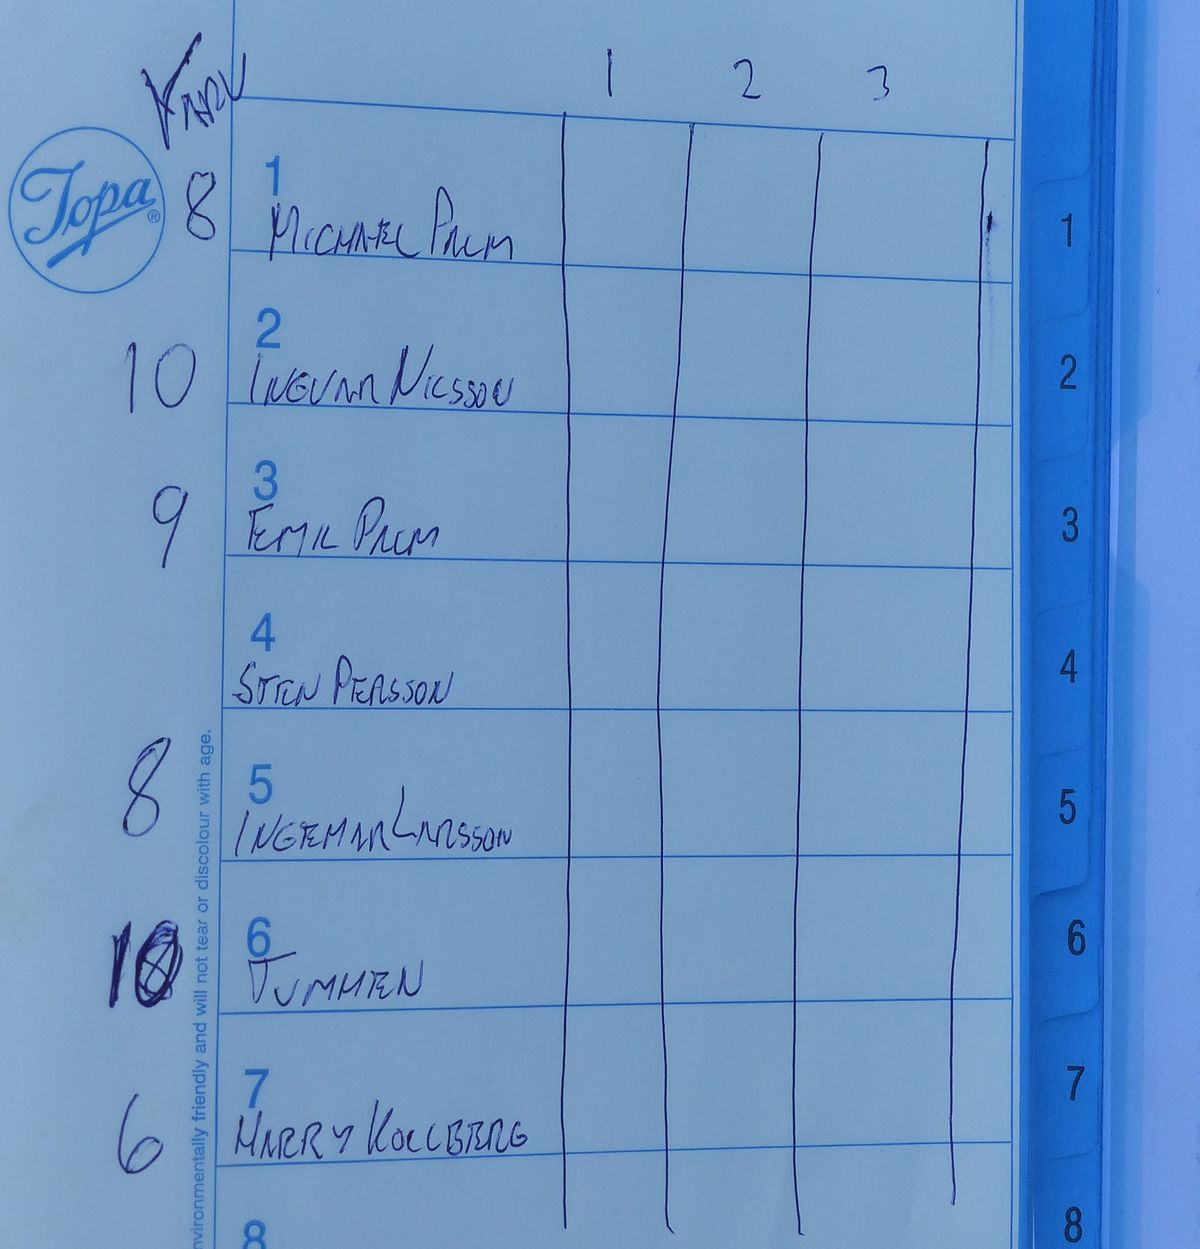 1 2 3
Topa®
8 1 MICHAEL PALM 1
10 2 INGVAR NILSSON 2
9 3 EMIL PALM 3
4 STEN PERSSON 4
8 5 INGEMAR LARSSON 5
10 6 JUMMEN 6
6 7 HARRY KOLLBERG 7
8 8
nvironmentally friendly and will not tear or discolour with age.